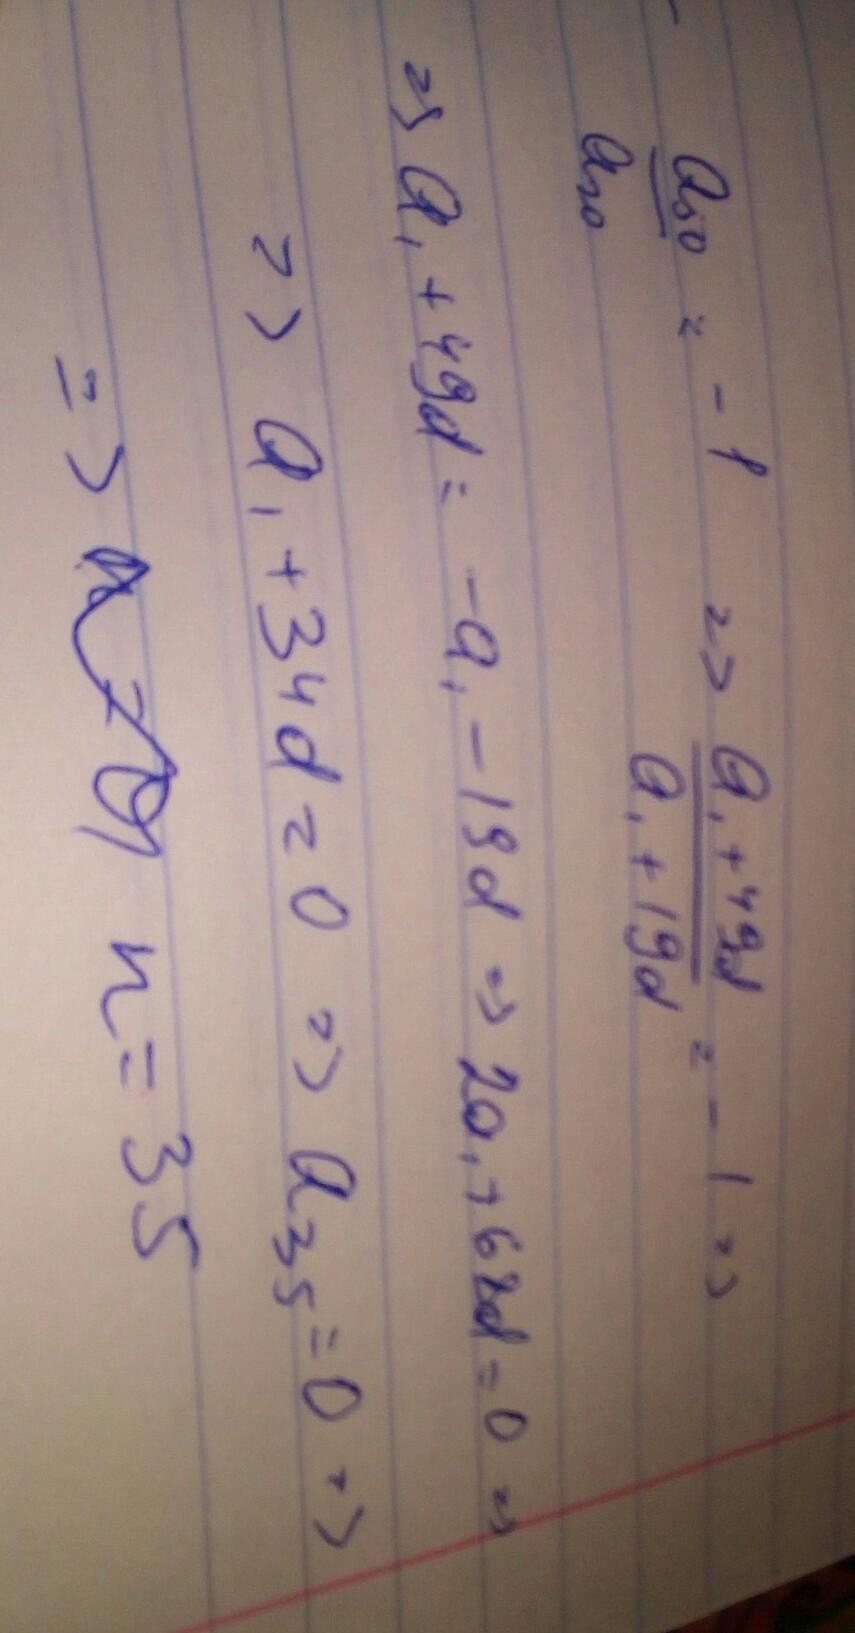 a₅₀/a₂₀ = -1 => (a₁+49d)/(a₁+19d) = -1 =>
=> a₁+49d = -a₁-19d => 2a₁+68d=0 =>
=> a₁+34d=0 => a₃₅=0 =>
=> n=35